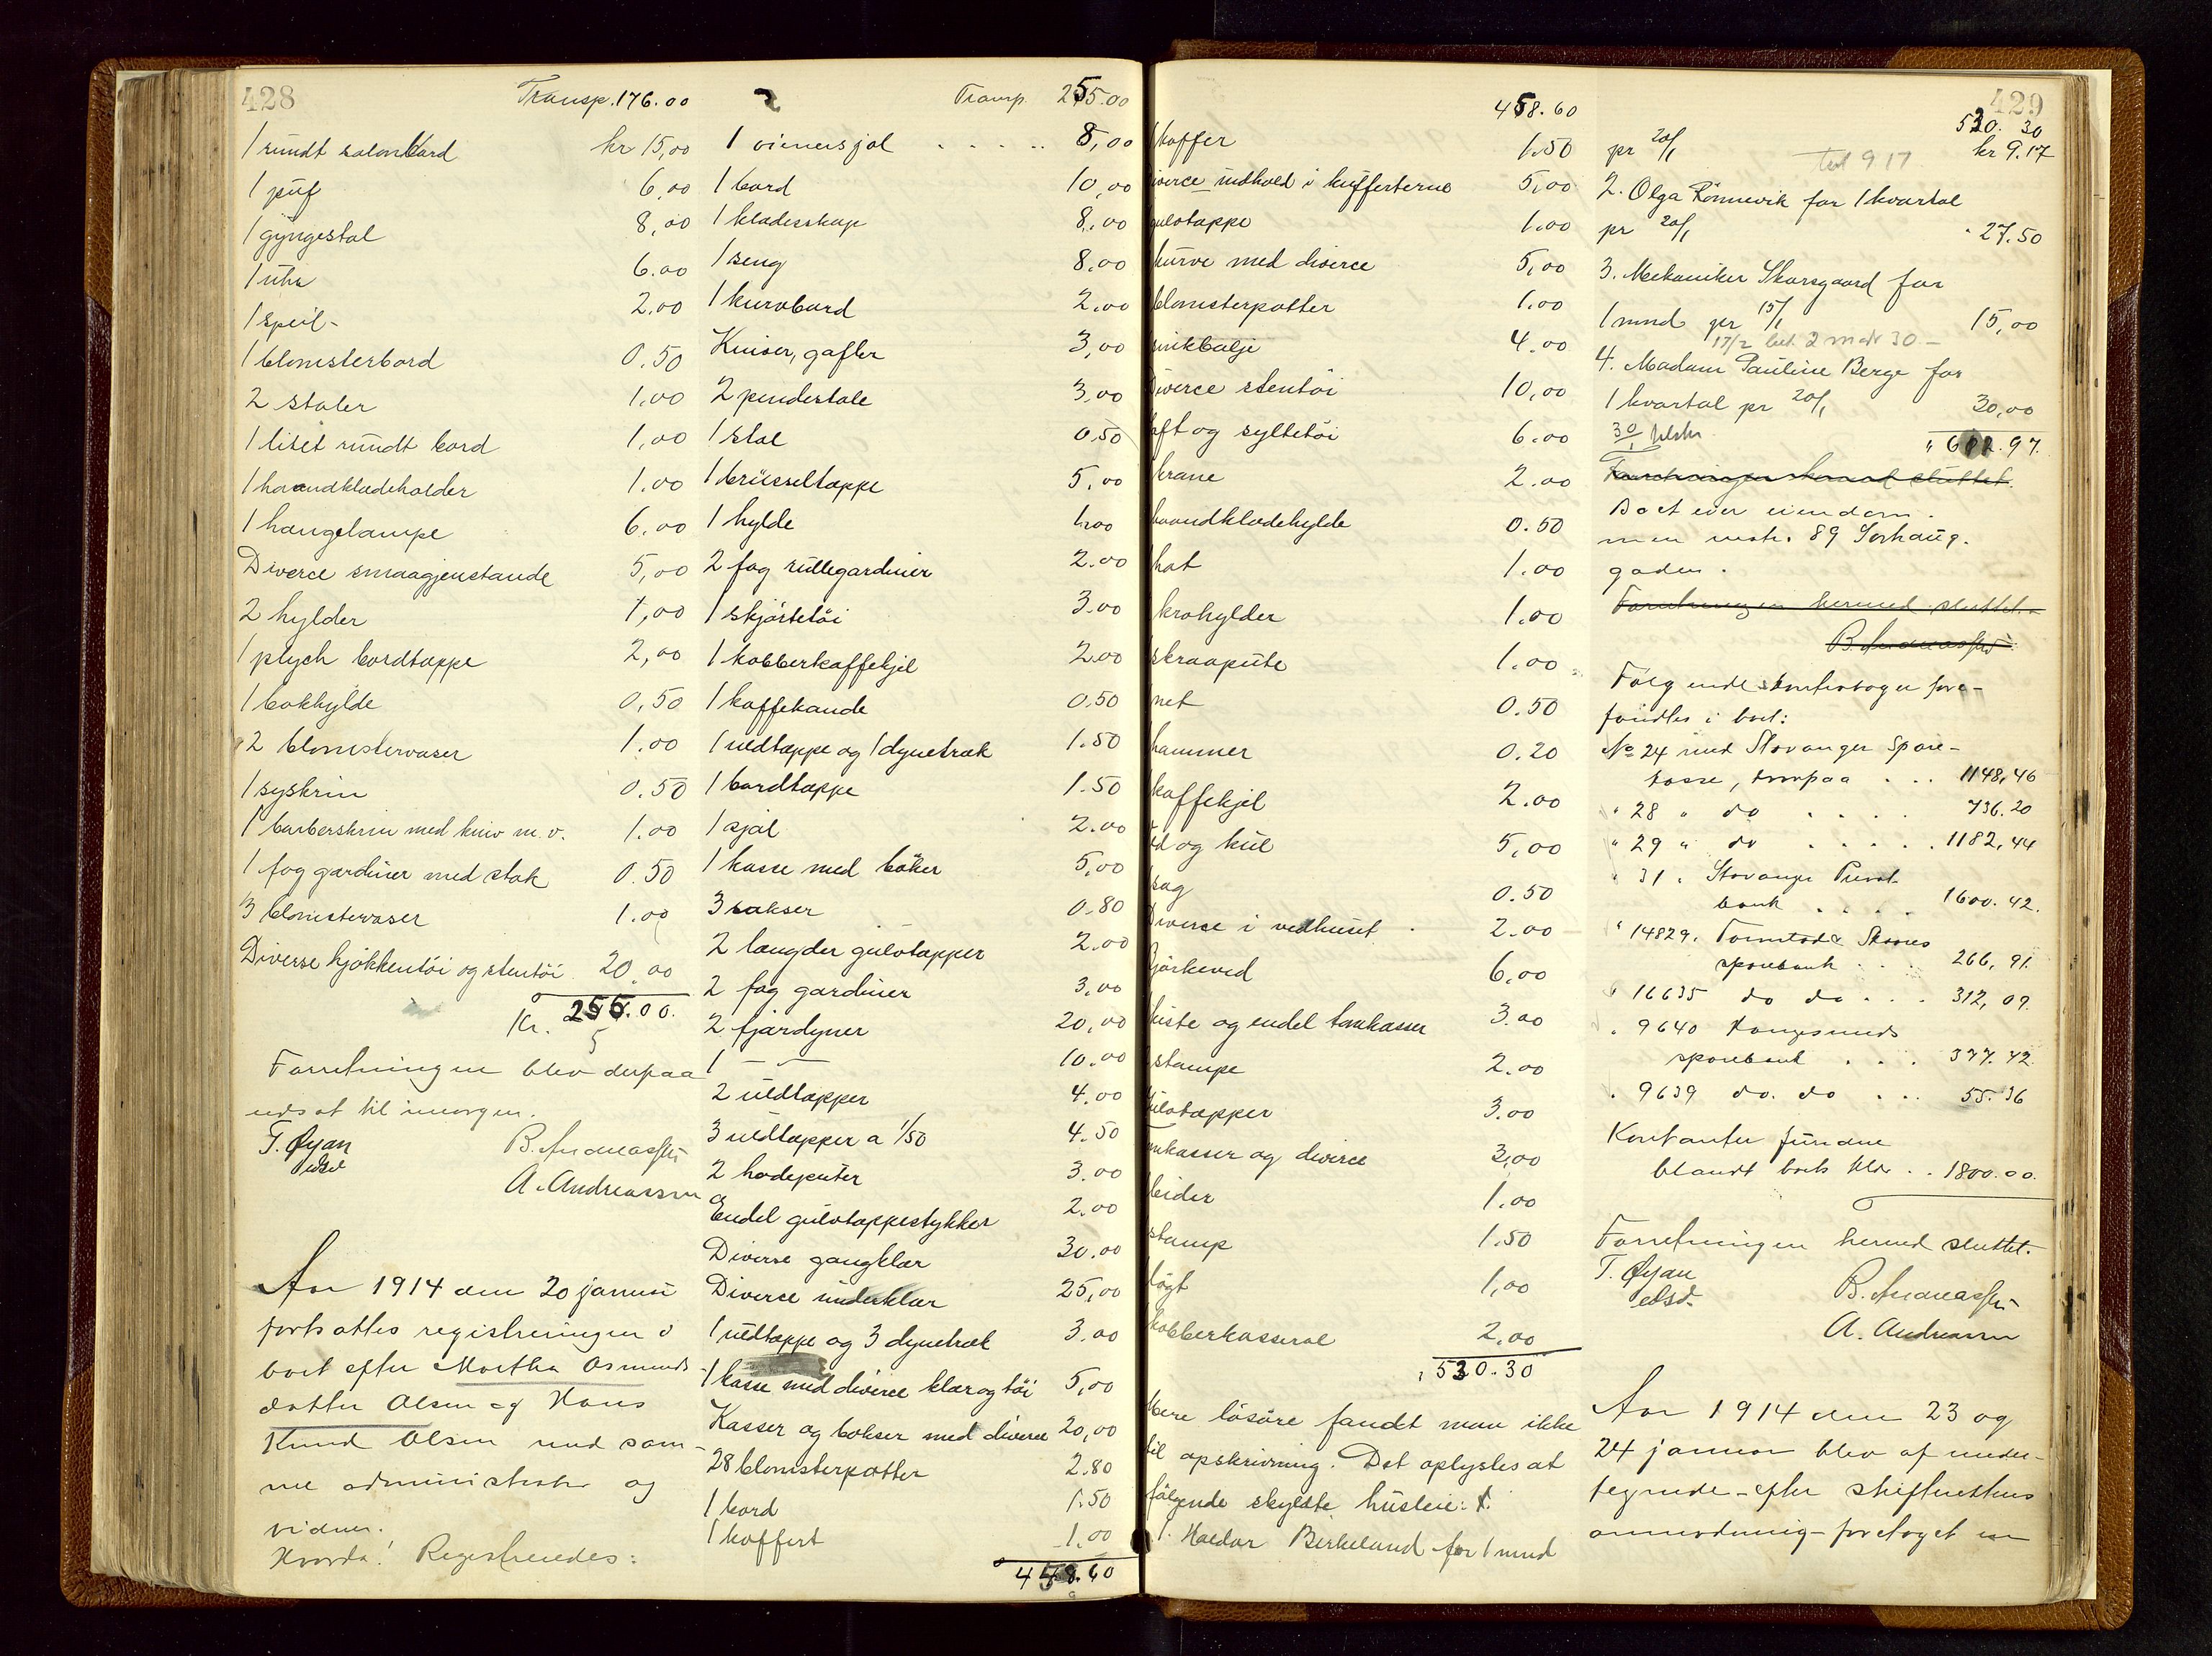 428
Transp. 176.00
1 rundt salonbord kr 15,00
1 puf 6,00
1 gyngestol 8,00
1 uhr 6.00
1 speil - 2.00
1 blomsterbord 0.50
2 stoler 1,00
1 litet rundt bord 1,00
1 haandklædeholder 1.00
1 hængelampe 6,00
Diverce smaagjenstande 5,00
2 hylder 1,00
1 plych bordtæppe 2,00
1 bokhylde 0,50
2 blomstervaser 1.00
1 syskrin 0.50
1 barberskrin med kniv m.v. 1.00
1 fag gardiner med stok 0.50
3 blomstervaser 1.00
Diverse kjøkkentøi og stentøi 20,00
Kr. 255.00.
Forretningen blev derpaa
udsat til imorgen.
T. Øyan B. Andreassen
edsv A. Andreassen
Aar 1914 den 20 januar
fortsattes registreringen i
boet efter Martha Asmunds-
datter Olsen og Hans
Knud Olsen med sam-
me administrator og
vidner.
Hvorda! Registreredes:
Transp. 255.00
1 vienersjal . . . . . 8,00
1 bord 10,00
1 klædesskap 8,00
1 seng 8,00
1 kurvbord 2,00
Kniver, gafler 3,00
2 pindestole 3,00
1 stol 0,50
1 brüsseltæppe 5,00
1 hylde 1,00
2 fag rullegardiner 2.00
1 skjørtetøi 3.00
1 kobberkaffekjel 2.00
1 kaffekande 0.50
1 uldtæppe og 1 dynetræk 1.50
1 bordtæppe 1.50
1 sjal 2.00
1 kasse med bøker 5,00
3 sakser 0.80
2 længder gulvtæpper 2.00
2 fag gardiner 3,00
2 fjærdyner 20,00
1 — 10.00
2 uldtæpper 4.00
3 uldtæpper a 1/50 4.50
2 hodeputer 3.00
Endel gulvtæppestykker 2.00
Diverse gangklær 30.00
Diverce underklær 25,00
1 uldtæppe og 3 dynetræk 3.00
1 kasse med diverce klær og tøi 5,00
Kasser og bokser med diverce 20,00
28 blomsterpotter 2.80
1 bord 1.50
1 koffert 1.00
458.60
458.60
koffer 1.50
iverce indhold i kufferterne 5,00
gulvtæppe 1.00
kurve med diverce 5,00
blomsterpotter 1.00
sinkbalje 4.00
Diverce stentøi 10,00
aft og syltetøi 6.00
krane 2.00
haandklædehylde 0.50
hat 1.00
krohylder 1.00
skraapute 1.00
net 0.50
hammer 0.20
kaffekjel 2.00
ed og kul 5,00
sag 0.50
Diverse i vedhuset 2.00
bjørkeved 6.00
kiste og endel tomkasser 3.00
stampe 2.00
gulvtæpper 3.00
omkasser og diverce 3,00
leider 1.00
stamp 1.50
løgt 1,00
kobberkasserol 2,00
530.30
Mere løsøre fandt man ikke
til opskrivning. Det oplystes at
følgende skyldte husleie:
1. Haldor Birkeland for 1 mnd
429
530. 30
pr 20/1 kr 9.17
bet 917
2. Olga Rönnevik for 1 kvartal
pr 20/1 27.50
3. Mekaniker Skarsgaard for
1 mnd pr 15/1 15,00
17/2 bet. 2 mdr 30 -
4. Madam Pauline Berge for
1 kvartal pr 20/1 30,00
" 612.97.
Forretningen hermed sluttet.
Boet eier eiendom.
men matr. 89 Sørhaug.
gaden.
Forretningen hermed sluttet.
B. Andreassen
Følgende kontrabøger fore-
fandtes i boet:
No 24 med Stavanger Spare-
kasse, lydpaa . . . 1148,46
" 28 " do . . . . 736.20
" 29 " do . . . . . 1182,44
" 31 " Stavanger Privat-
bank . . . . 1600.42.
" 14829. Torvestad & Skaares
sparebank . . . 266,91.
" 16635 do do . . . 312,09.
" 9640 Haugesunds
sparebank . . . 377.42
" 9639 do. do . . . 55.36
Kontanter fundne
blandt boets klær . . 1800.00.
Forretningen hermed sluttet.
T. Øyan B. Andreassen
edsv. A. Andreassen
Aar 1914 den 23 og
24 januar blev af under-
tegnede - efter skifterettens
anmodning - foretaget en